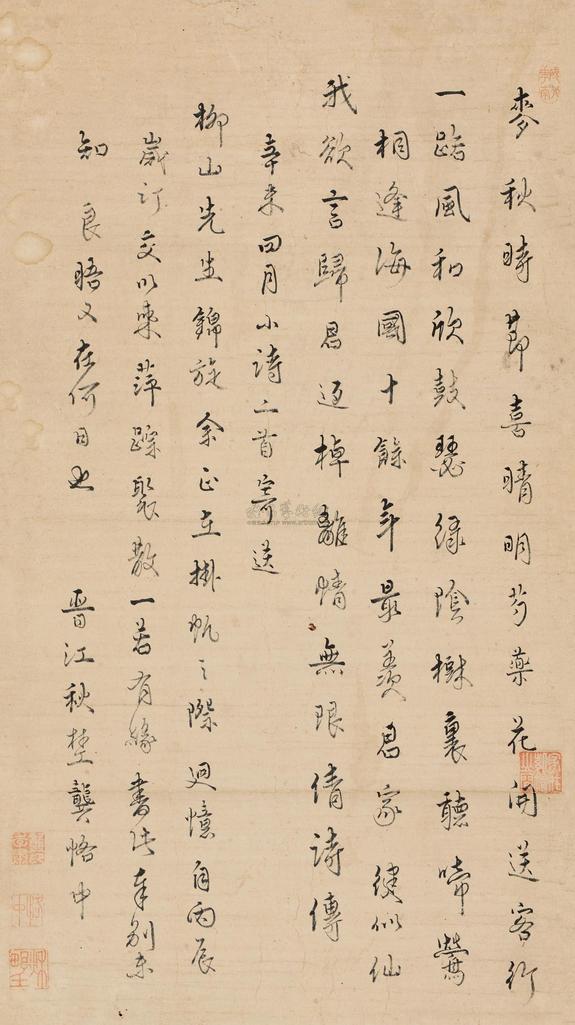 麥秋時節喜晴明芍藥花開送客行
一路風和欣鼓瑟綠陰樹裏聽啼鶯
相逢海國十餘年最羨君家健似仙
我欲言歸君返棹離情無限倩詩傳
辛未四月小詩二首寄送
柳山先生錦旋余正在掛帆之際迴憶自丙辰
歲訂交以來萍蹤聚散一若有緣書此奉別未
知良晤又在何日也
晉江秋埜龔恪中